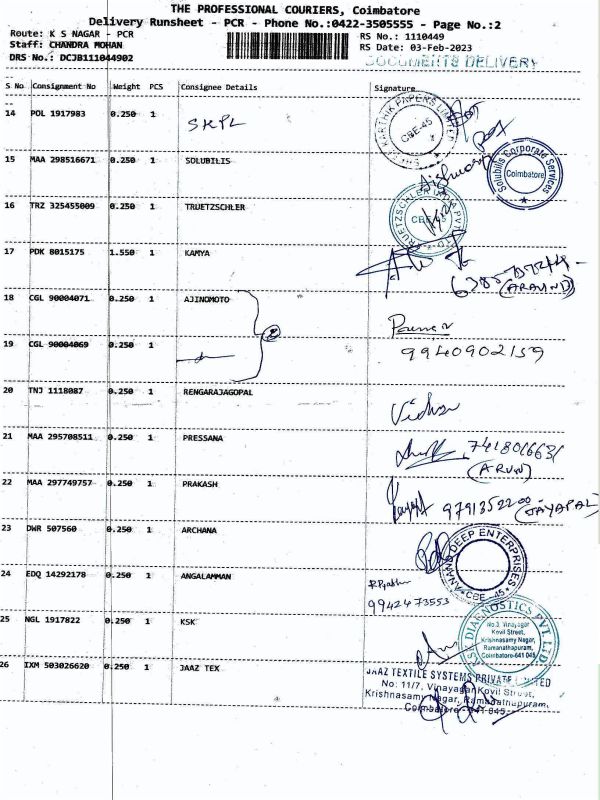 THE PROFESSIONAL COURIERS, Coimbatore
Delivery Runsheet - PCR - Phone No.:0422-3505555 - Page No.:2
Route: K S NAGAR - PCR
Staff: CHANDRA MOHAN
DRS No.: DCJB111044902
RS No.: 1110449
RS Date: 03-Feb-2023
DOCUMENTS DELIVERY
S No Consignment No Weight PCS Consignee Details Signature
14 POL 1917983 0.250 1 SKPL
SHREE KARTHIK PAPERS LIMITED CBE-45
15 MAA 298516671 0.250 1 SOLUBILIS
Solubilis Corporate Services Coimbatore
16 TRZ 325455009 0.250 1 TRUETZSCHLER
TRUETZSCHLER INDIA PVT LTD CBE-45
17 PDK 8015175 1.550 1 KAMYA
(ARAVIND)
18 CGL 90004071 0.250 1 AJINOMOTO
2
19 CGL 90004069 0.250 1
9940902159
20 TNJ 1118087 0.250 1 RENGARAJAGOPAL
21 MAA 295708511 0.250 1 PRESSANA
(ARUN)
22 MAA 297749757 0.250 1 PRAKASH
9791352200 - (JAYAPAL)
23 DWR 507560 0.250 1 ARCHANA
ANAND DEEP ENTERPRISES CBE-45
24 EDQ 14292178 0.250 1 ANGALAMMAN
9942473553
25 NGL 1917822 0.250 1 KSK
KSK DIAGNOSTICS PVT. LTD.
No.3, Vinayagar
Kovil Street,
Krishnasamy Nagar,
Ramanathapuram,
Coimbatore-641 045
26 IXM 503026620 0.250 1 JAAZ TEX
JAAZ TEXTILE SYSTEMS PRIVATE LIMITED
No: 11/7, Vinayagar Kovil Street,
Krishnasamy Nagar, Ramanathapuram,
Coimbatore - 641 045